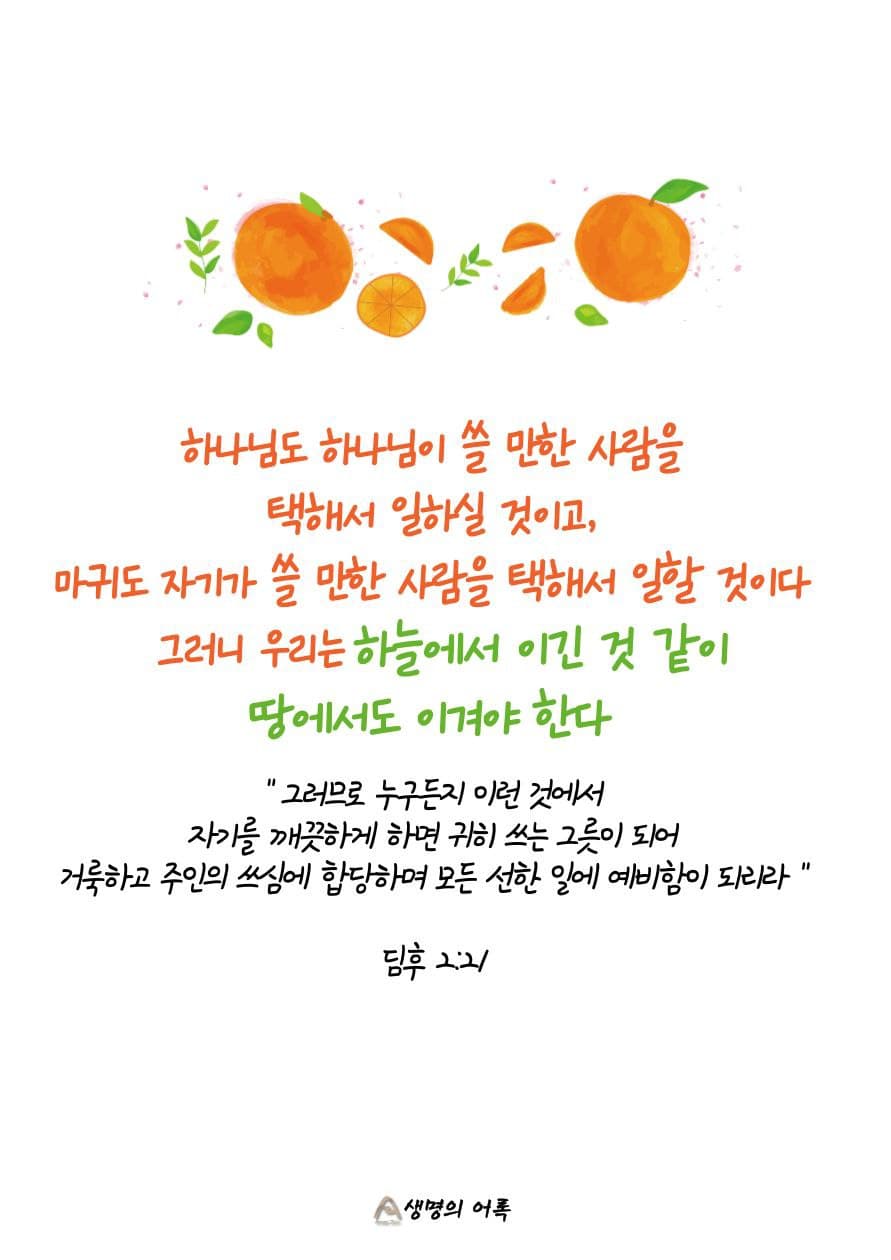 하나님도 하나님이 쓸 만한 사람을
택해서 일하실 것이고,
마귀도 자기가 쓸 만한 사람을 택해서 일할 것이다
그러니 우리는 하늘에서 이긴 것 같이
땅에서도 이겨야 한다
" 그러므로 누구든지 이런 것에서
자기를 깨끗하게 하면 귀히 쓰는 그릇이 되어
거룩하고 주인의 쓰심에 합당하며 모든 선한 일에 예비함이 되리라 "
딤후 2:21
생명의 어록